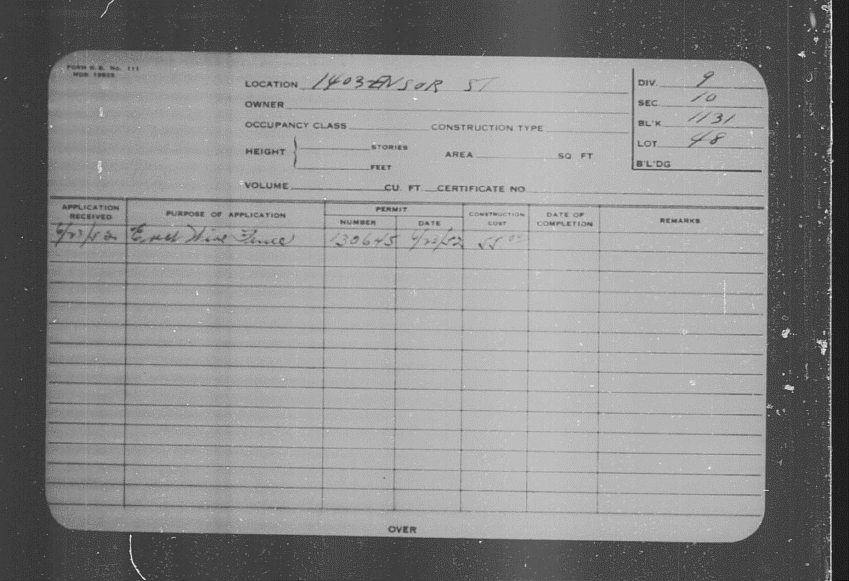 FORM N.B. No. 111
LOCATION 1403 ENSOR ST
DIV. 9
OWNER
SEC 10
OCCUPANCY CLASS CONSTRUCTION TYPE
BL'K 1131
HEIGHT STORIES AREA SQ FT
LOT 48
FEET
B'L'DG
VOLUME CU. FT. CERTIFICATE NO
APPLICATION RECEIVED PURPOSE OF APPLICATION PERMIT NUMBER DATE CONSTRUCTION COST DATE OF COMPLETION REMARKS
Wire Fence 130645 55 00
OVER